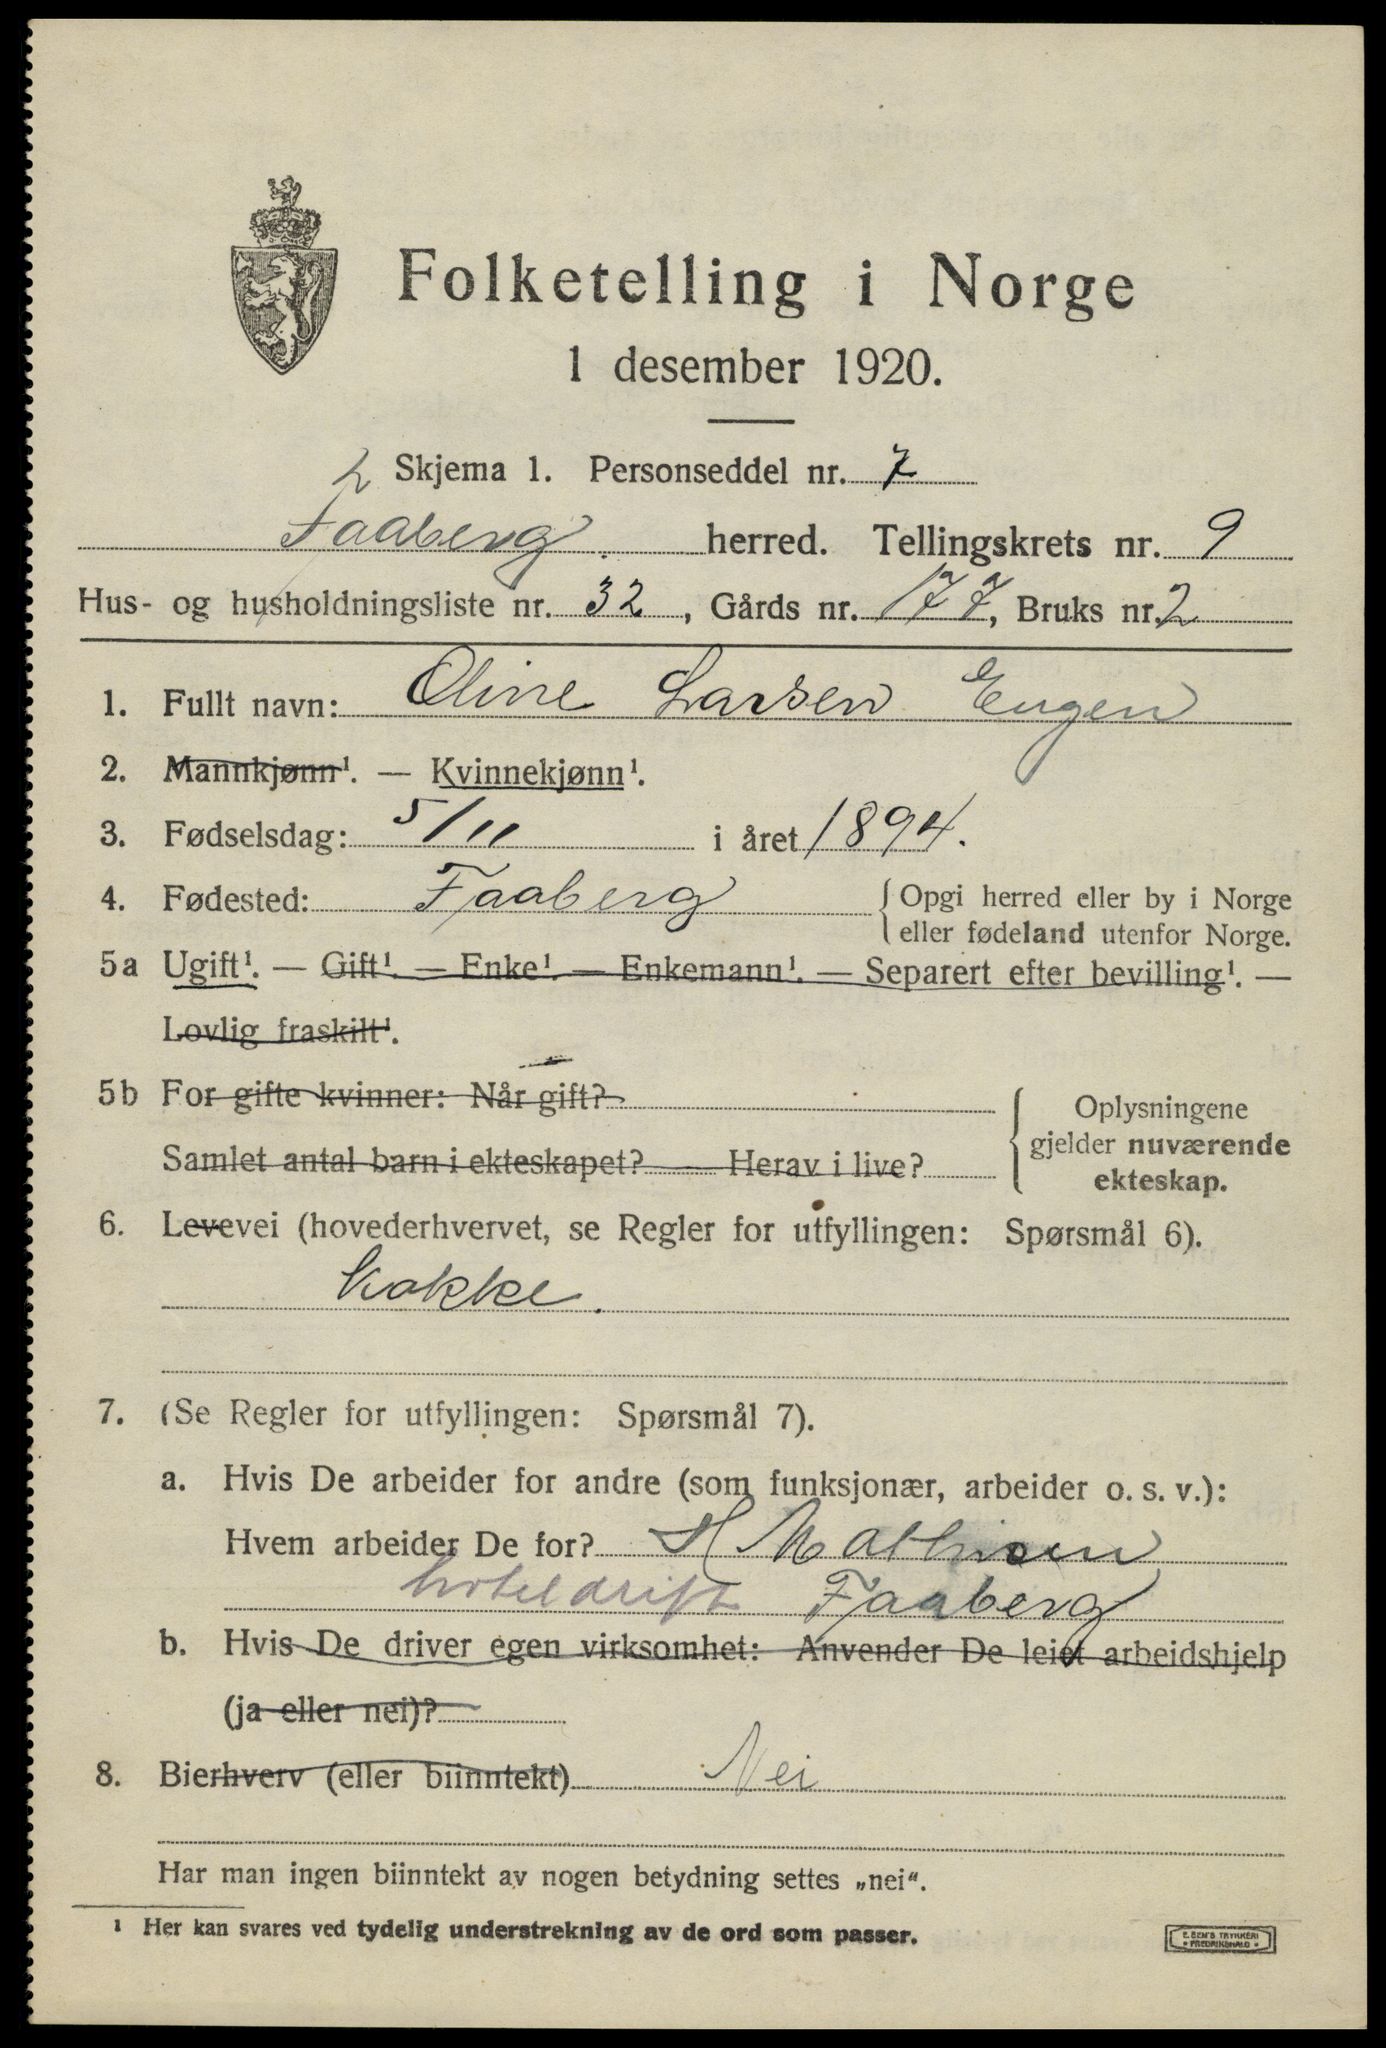 Folketelling i Norge
1 desember 1920.
2 Skjema 1. Personseddel nr. 7
Faaberg. herred. Tellingskrets nr. 9
Hus- og husholdningsliste nr. 32, Gårds nr. 177, Bruks nr. 2
1. Fullt navn: Oline Larsen Eugen
2. Mannkjønn¹. — Kvinnekjønn¹.
3. Fødselsdag: 5/11 i året 1894.
4. Fødested: Faaberg { Opgi herred eller by i Norge
eller fødeland utenfor Norge.
5a Ugift¹. — Gift¹. — Enke¹. — Enkemann¹. — Separert efter bevilling¹. —
Lovlig fraskilt¹.
5b For gifte kvinner: Når gift?
Samlet antal barn i ekteskapet? Herav i live?
Oplysningene
gjelder nuværende
ekteskap.
6. Levevei (hovederhvervet, se Regler for utfyllingen: Spørsmål 6).
Kokke.
7. (Se Regler for utfyllingen: Spørsmål 7).
a. Hvis De arbeider for andre (som funksjonær, arbeider o. s. v.):
Hvem arbeider De for? H Mathisen
hoteldrift Faaberg
b. Hvis De driver egen virksomhet: Anvender De leiet arbeidshjelp
(ja eller nei)?
8. Bierhverv (eller biinntekt) Nei
Har man ingen biinntekt av nogen betydning settes „nei“.
¹ Her kan svares ved tydelig understrekning av de ord som passer.
E. SEM'S TRYKKERI
• FREDRIKSHALD •